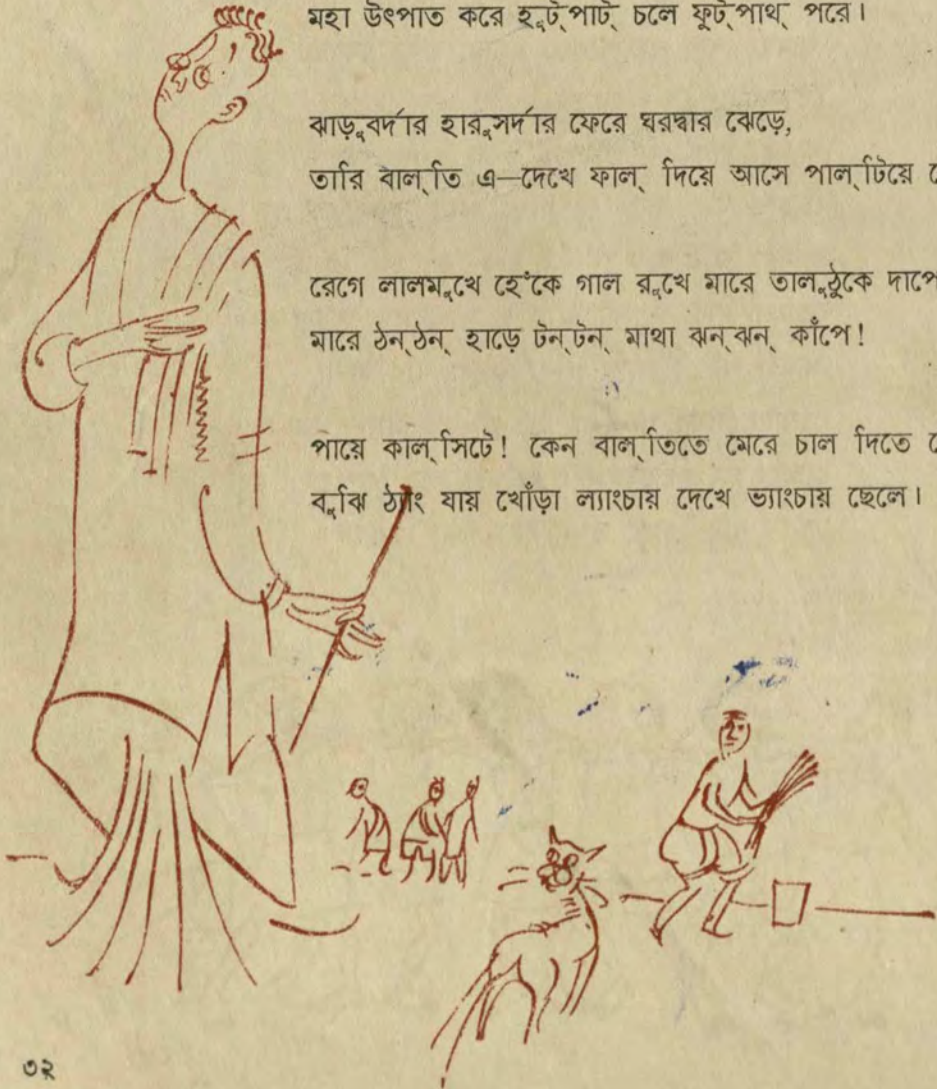 মহা উৎপাত করে হুট্‌পাট্‌ চলে ফুট্‌পাথ্‌ পরে।
ঝাড়ুবর্দার হারুসর্দার ফেরে ঘরদ্বার ঝেড়ে,
তারি বাল্‌তি এ—দেখে ফাল্‌ দিয়ে আসে পাল্‌টিয়ে
রেগে লালমুখে হেঁকে গাল রুখে মারে তালঠুকে দাপে
মারে ঠন্‌ঠন্‌ হাড়ে টন্‌টন্‌ মাথা ঝন্‌ঝন্‌ কাঁপে!
পায়ে কাল্‌সিটে! কেন বাল্‌তিতে মেরে চাল দিতে
বুঝি ঠ্যাং যায় খোঁড়া ল্যাংচায় দেখে ভ্যাংচায় ছেলে।
৩২